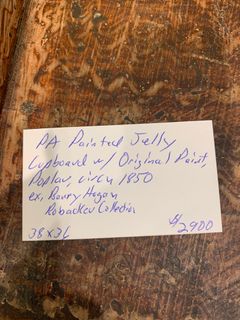 PA Painted Jelly
Cupboard w/ Original Paint,
Poplar, circa 1850
ex, Barry Hogan
Robacker Collection
38x36
$2900